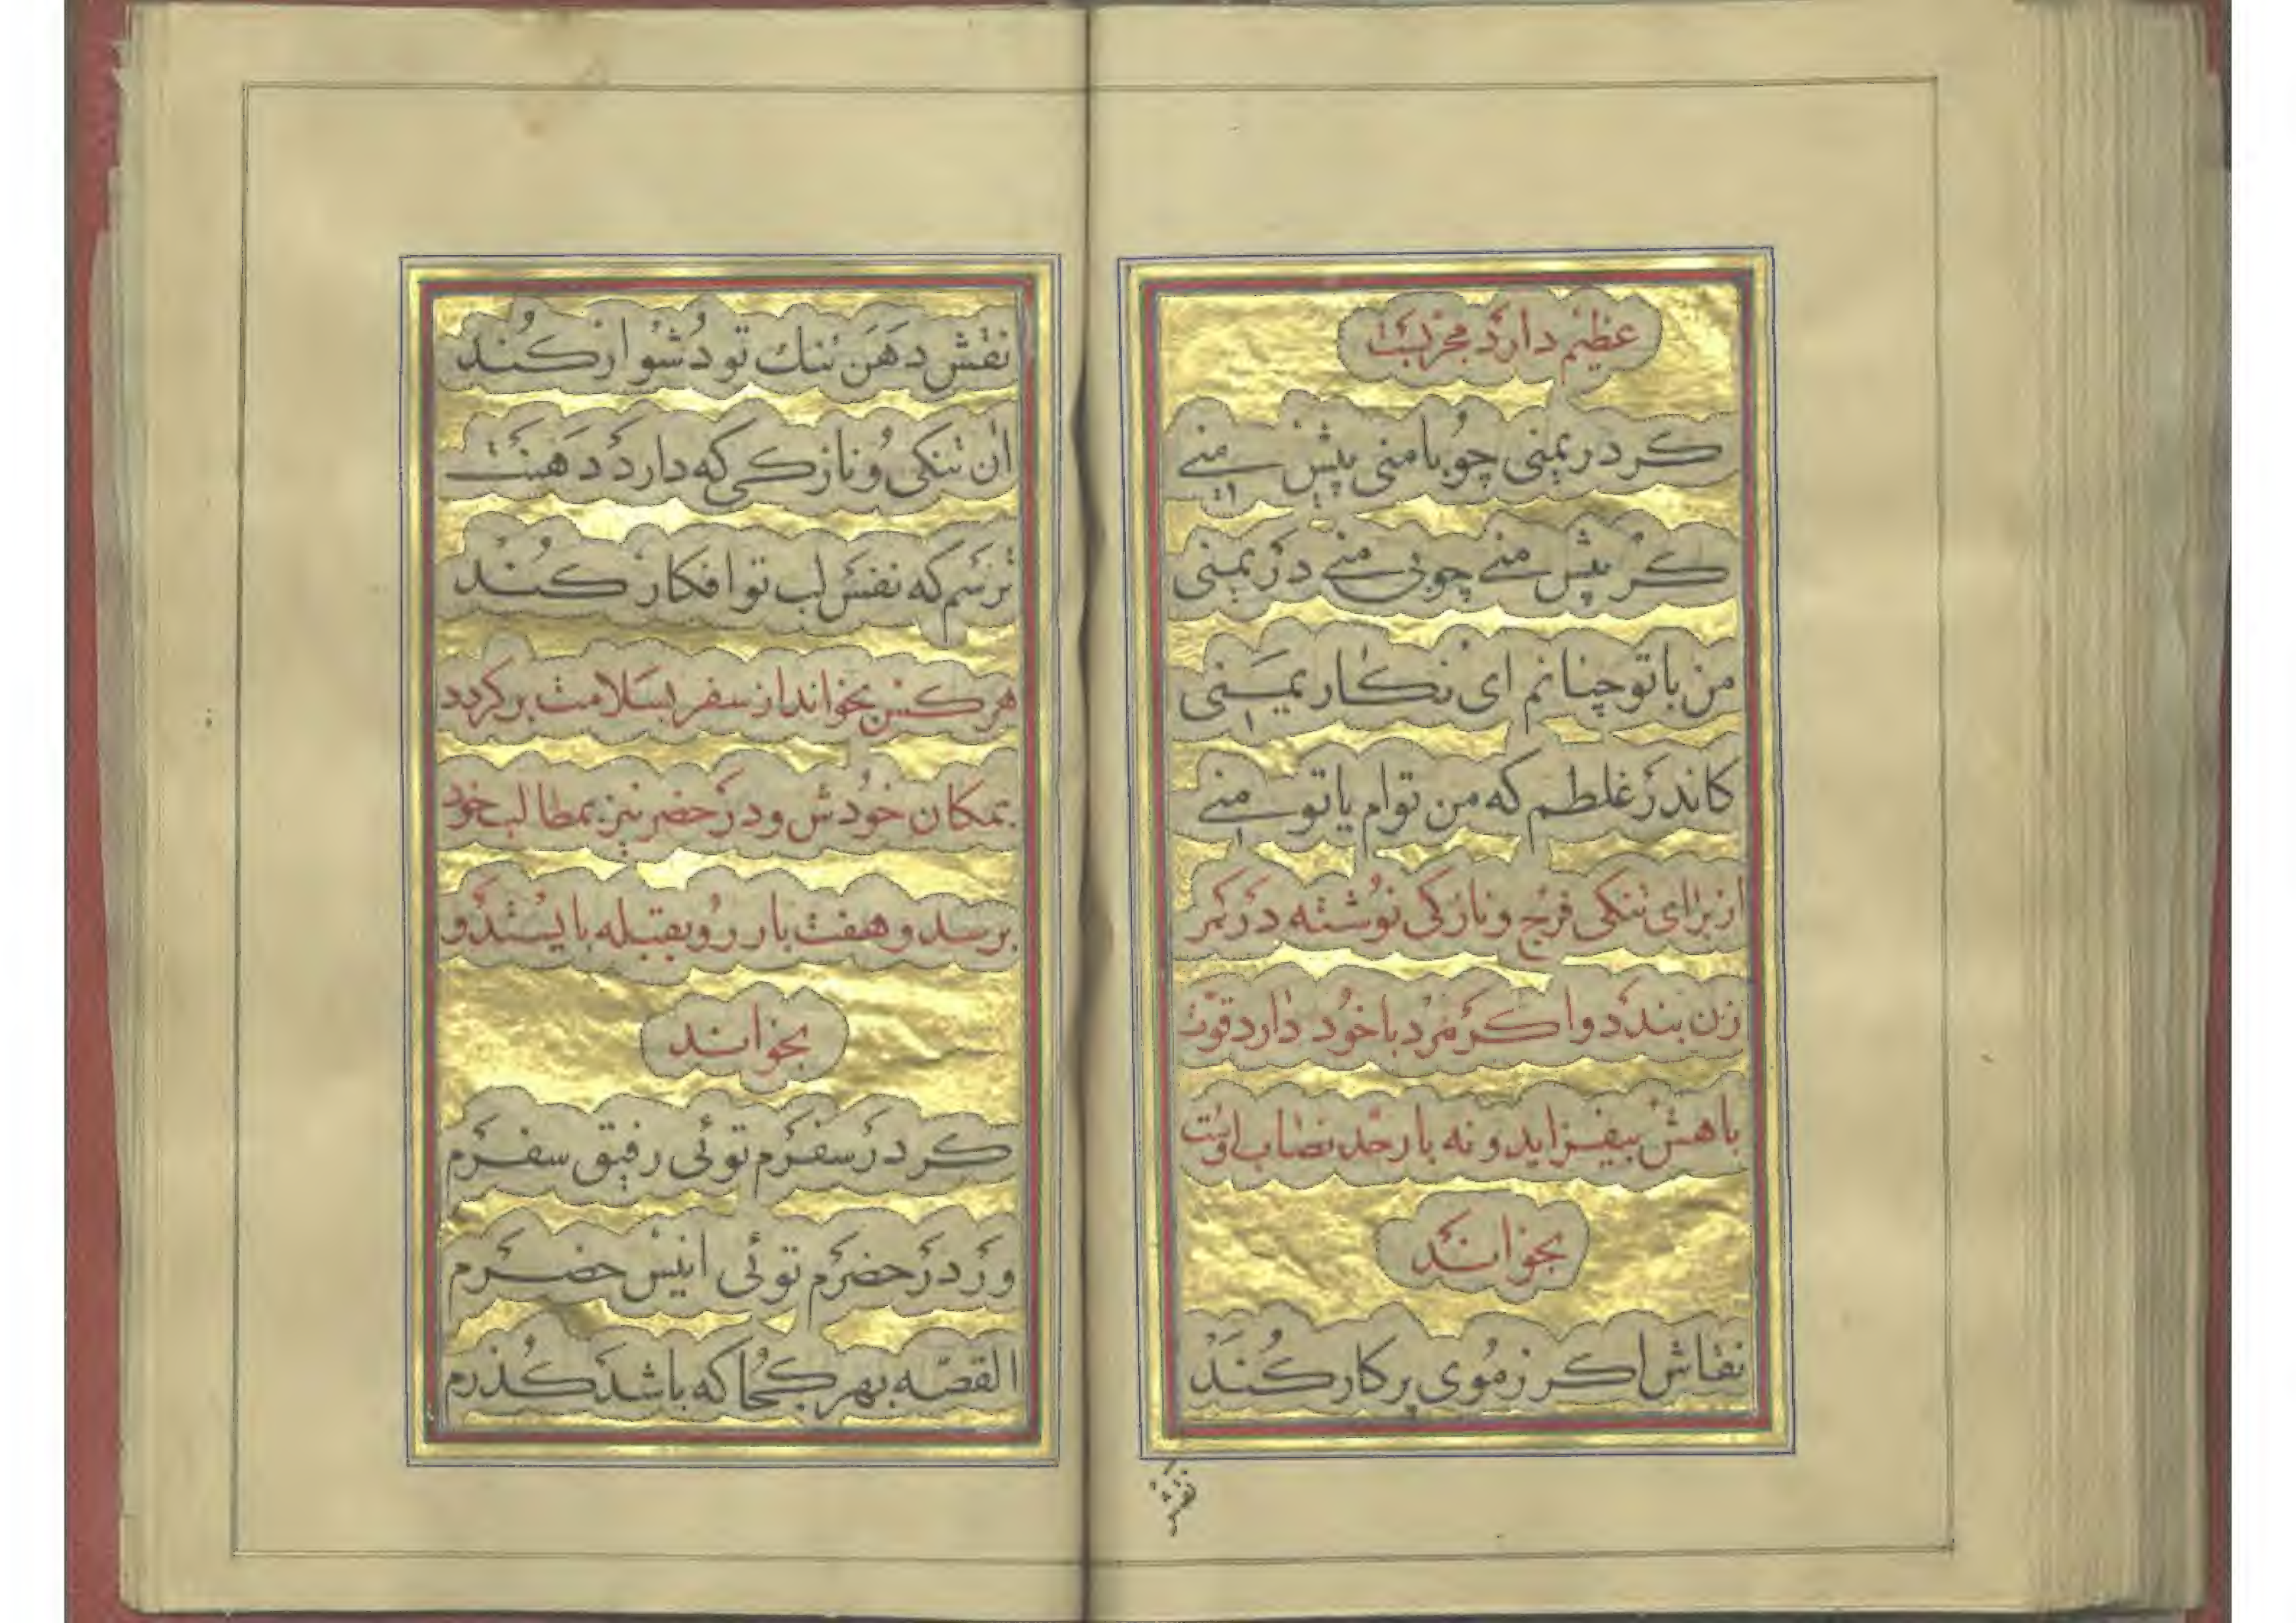 عظیم دارد مجربست
کر در یمنی چو با منی پیش منی
کر پیش منی چو بی منی در یمنی
من با تو چنانم ای نکار یمنی
کاندر غلطم که من توام یا تو منی
از برای تنکی فرج و نازکی نوشته در کمر
زن بندد و اکر مرد با خود دارد قوت
باهش بیفزاید و نه بار حد نصاب اوست
بخواند
نقاش اکر ز موی پرکار کند
نقش
نقش دهن تنك تو دشوار کند
آن تنکی و نازکی که دارد دهنت
ترسم که نفس لب تو افکار کند
هر کس بخواند از سفر بسلامت بر کردد
بمکان خودش و در حضر نیز بمطالب خود
برسد و هفت بار رو بقبله بایستد و
بخواند
کر در سفرم توئی رفیق سفرم
ور در حضرم توئی انیس حضرم
القصه بهر کجا که باشد کذرم